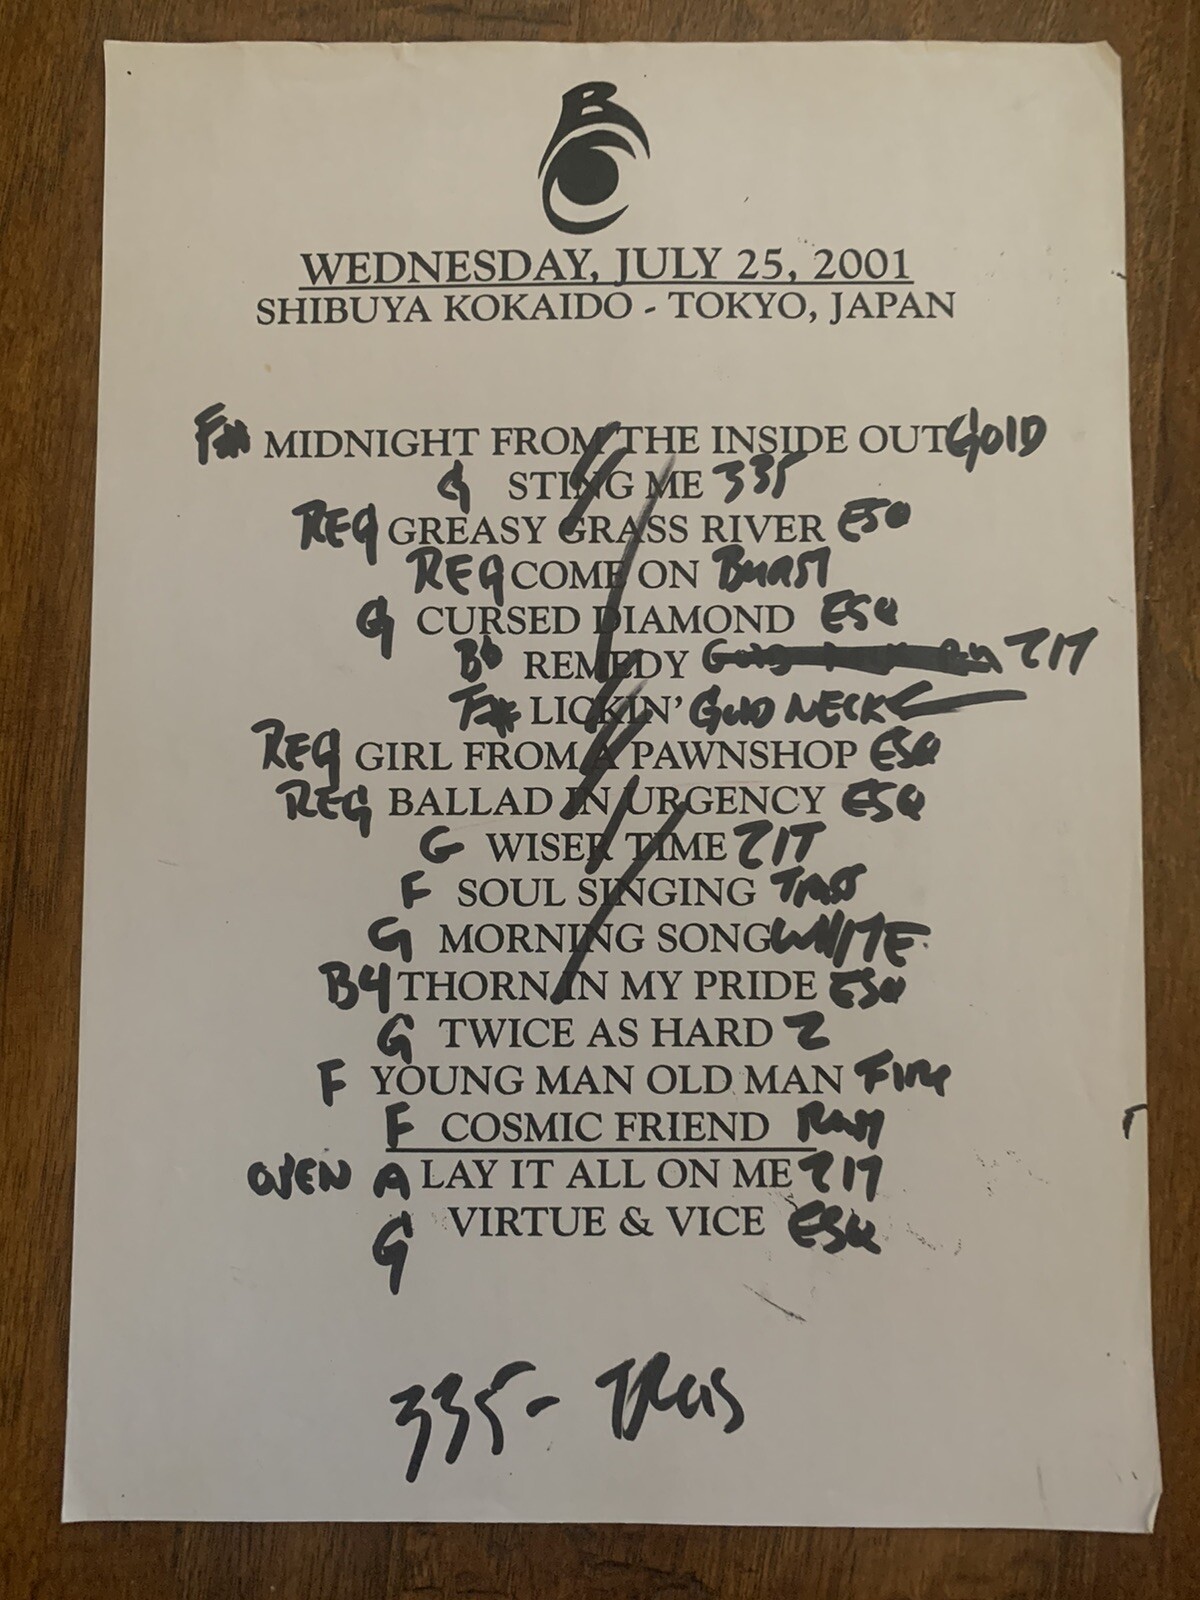 B
WEDNESDAY, JULY 25, 2001
SHIBUYA KOKAIDO - TOKYO, JAPAN
F# MIDNIGHT FROM THE INSIDE OUT GOLD
G STING ME 335
REG GREASY GRASS RIVER ESQ
REG COME ON BURST
G CURSED DIAMOND ESQ
REMEDY ZIT
F# LICKIN' GOLD NECK
REG GIRL FROM A PAWNSHOP ESQ
REG BALLAD IN URGENCY ESQ
G WISER TIME ZIT
F SOUL SINGING
G MORNING SONG WHITE
B4 THORN IN MY PRIDE ESQ
G TWICE AS HARD Z
F YOUNG MAN OLD MAN
F COSMIC FRIEND
OPEN A LAY IT ALL ON ME ZIT
G VIRTUE & VICE ESQ
335-